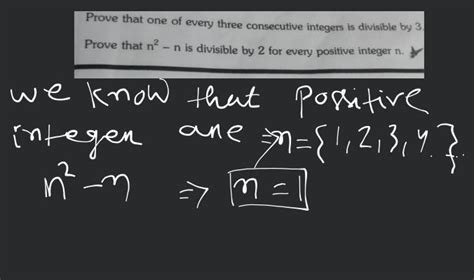 Prove that one of every three consecutive integers is divisible by 3.
Prove that n² – n is divisible by 2 for every positive integer n.
we know that positive
integer are ⇒ n={1,2,3,4..}
n² – n ⇒ n = 1